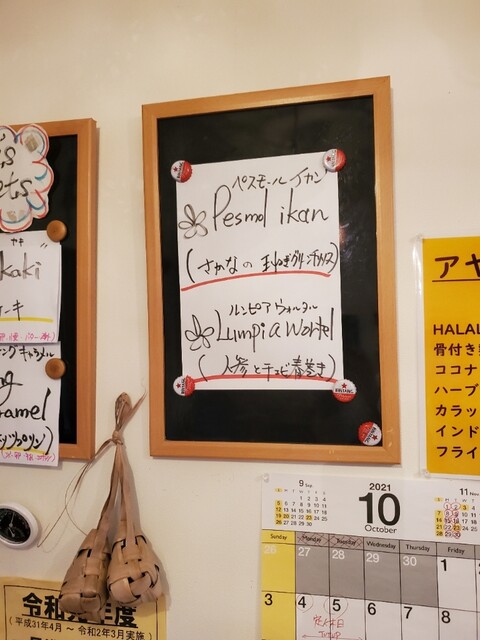 ペスモール イカン
Pesmol ikan
(さかなの 玉ねぎグリーンチリソース)
ルンピア ウォルテル
Lumpia Wortel
(人参とエビ春巻き)
ets
ヤキ
kaki
ケーキ
ングキャラメル
ng
ramel
アヤ
HALAL
骨付き
ココナ
ハーブ
カラッ
インド
フライ
9 Sep.
2021
10
October
11 Nov.
Sunday Monday Tuesday Wednesday Thursday Friday
26 27 28 29 30 1
3 4 5 6 7 8
令和元年度
(平成31年4月 ～ 令和2年3月実施)